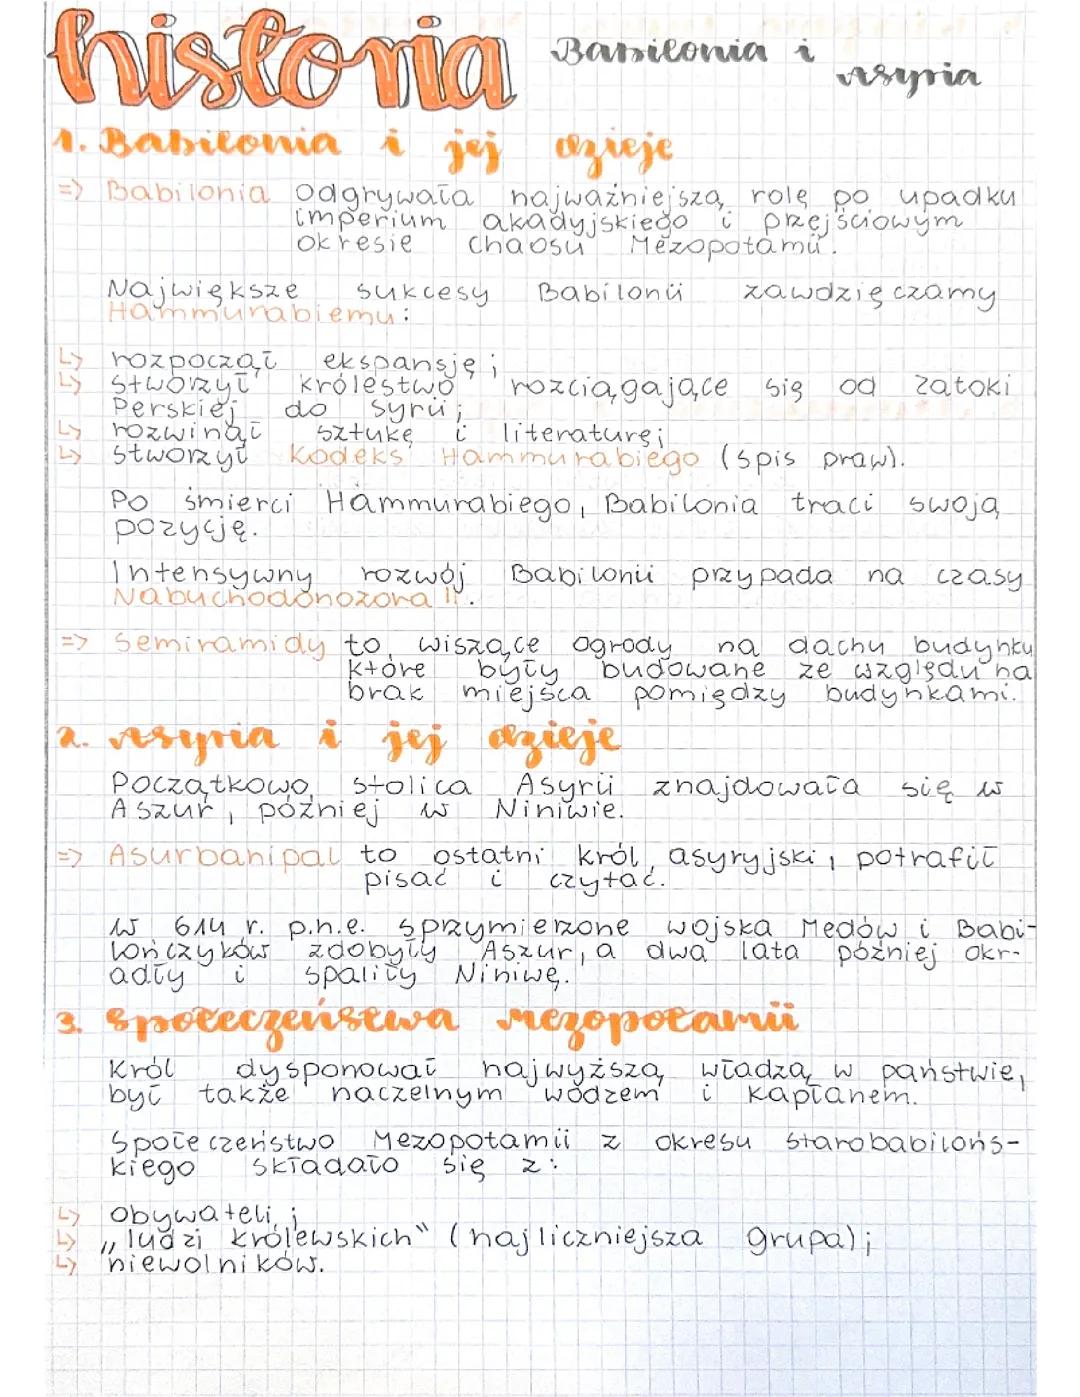 historia Babilonia i
Asyria
1. Babilonia i jej dzieje
=> Babilonia odgrywała najważniejszą rolę po upadku
imperium akadyjskiego i przejściowym
okresie chaosu Mezopotamii.
Największe sukcesy Babilonii zawdzięczamy
Hammurabiemu:
↳ rozpoczął ekspansję;
↳ stworzył królestwo rozciągające się od zatoki
Perskiej do Syrii;
↳ rozwinął sztukę i literaturę;
↳ stworzył Kodeks Hammurabiego (spis praw).
Po śmierci Hammurabiego, Babilonia traci swoją
pozycję.
Intensywny rozwój Babilonii przypada na czasy
Nabuchodonozora II.
=> Semiramidy to wiszące ogrody na dachu budynku,
które były budowane ze względu na
brak miejsca pomiędzy budynkami.
2. Asyria i jej dzieje
Początkowo, stolica Asyrii znajdowała się w
Aszur, później w Niniwie.
=> Asurbanipal to ostatni król asyryjski, potrafił
pisać i czytać.
W 614 r. p.n.e. sprzymierzone wojska Medów i Babi-
lończyków zdobyły Aszur, a dwa lata później okr-
adły i spaliły Niniwę.
3. Społeczeństwa Mezopotamii
Król dysponował najwyższą władzą w państwie,
był także naczelnym wodzem i kapłanem.
Społeczeństwo Mezopotamii z okresu starobabilońs-
kiego składało się z:
↳ obywateli;
↳ „ludzi królewskich" (najliczniejsza grupa);
↳ niewolników.